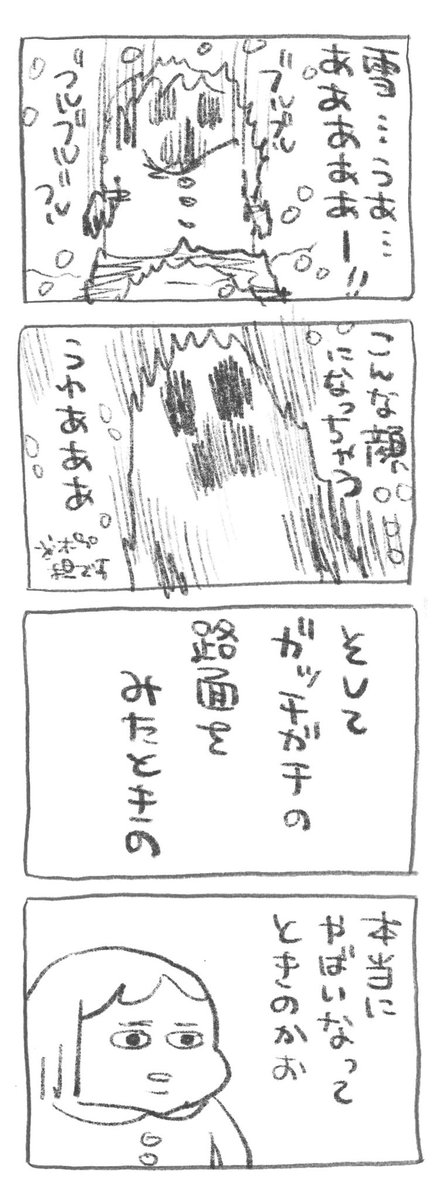 雪…うあ…
あああああー!!
ブルブル
ブルブルブル
こんな顔
になっちゃう
うわあああ
そして
ガッチガチの
路面を
みたときの
本当に
やばいなって
ときのかお